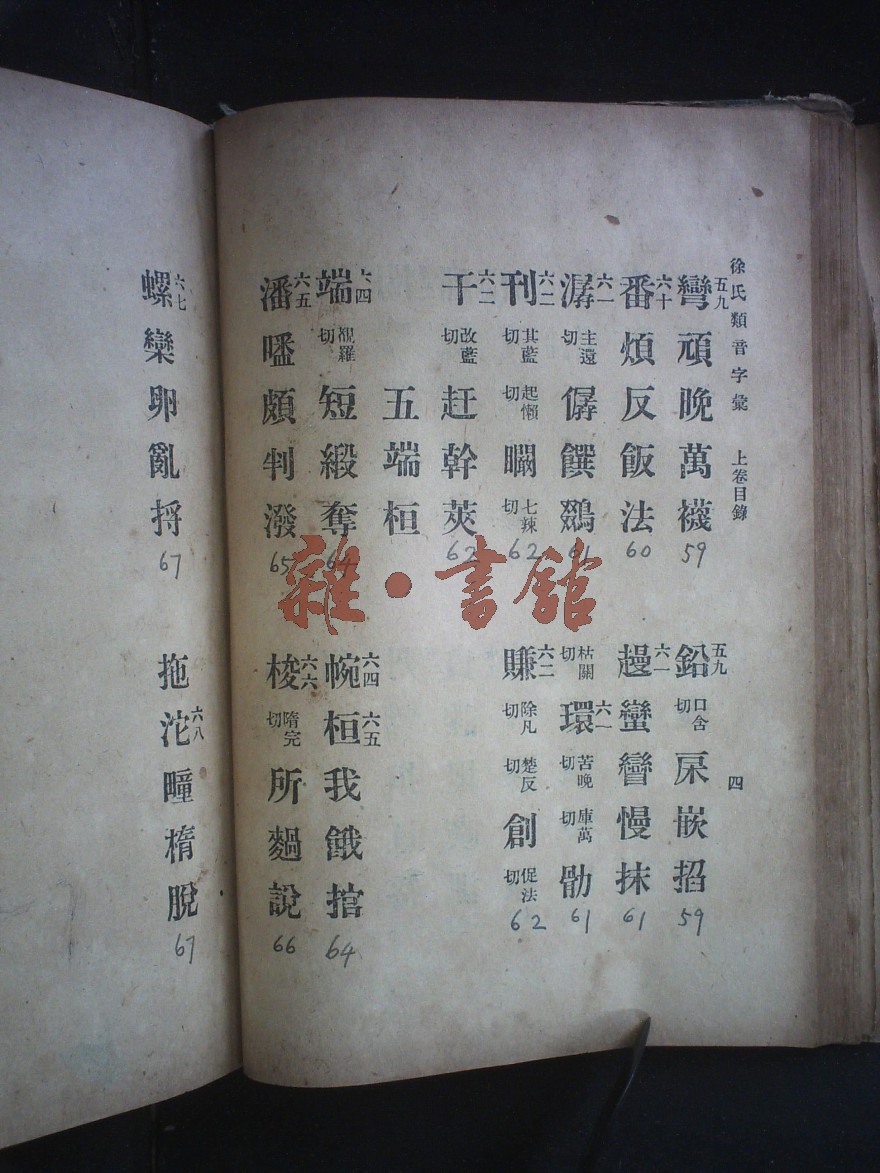 徐氏類音字彙 上卷目錄 四
五九 彎頑晚萬襪 59
五九 鉛 口含切 屎嵌掐 59
六十 番煩反飯法 60
六一 趨蠻矕慢抹 61
六一 潺 主還切 僝饌鵽 61
枯關切 六一 環 苦晚切 庫萬切 骱 61
六二 刊 其藍切 起懶切 瞯 七辣切 62
六二 賺 除凡切 楚反切 創 促法切 62
六二 干 改藍切 赶幹莢 62
五端桓
六四 端 覩羅切 短緞奪 64
六四 帵 六五 桓我餓捾 64
六五 潘 頗判潑 65
六六 梭 隋完切 所 說 66
六七 螺欒卵亂捋 67
拖 六八 沱疃楕脫 67
雜·書館